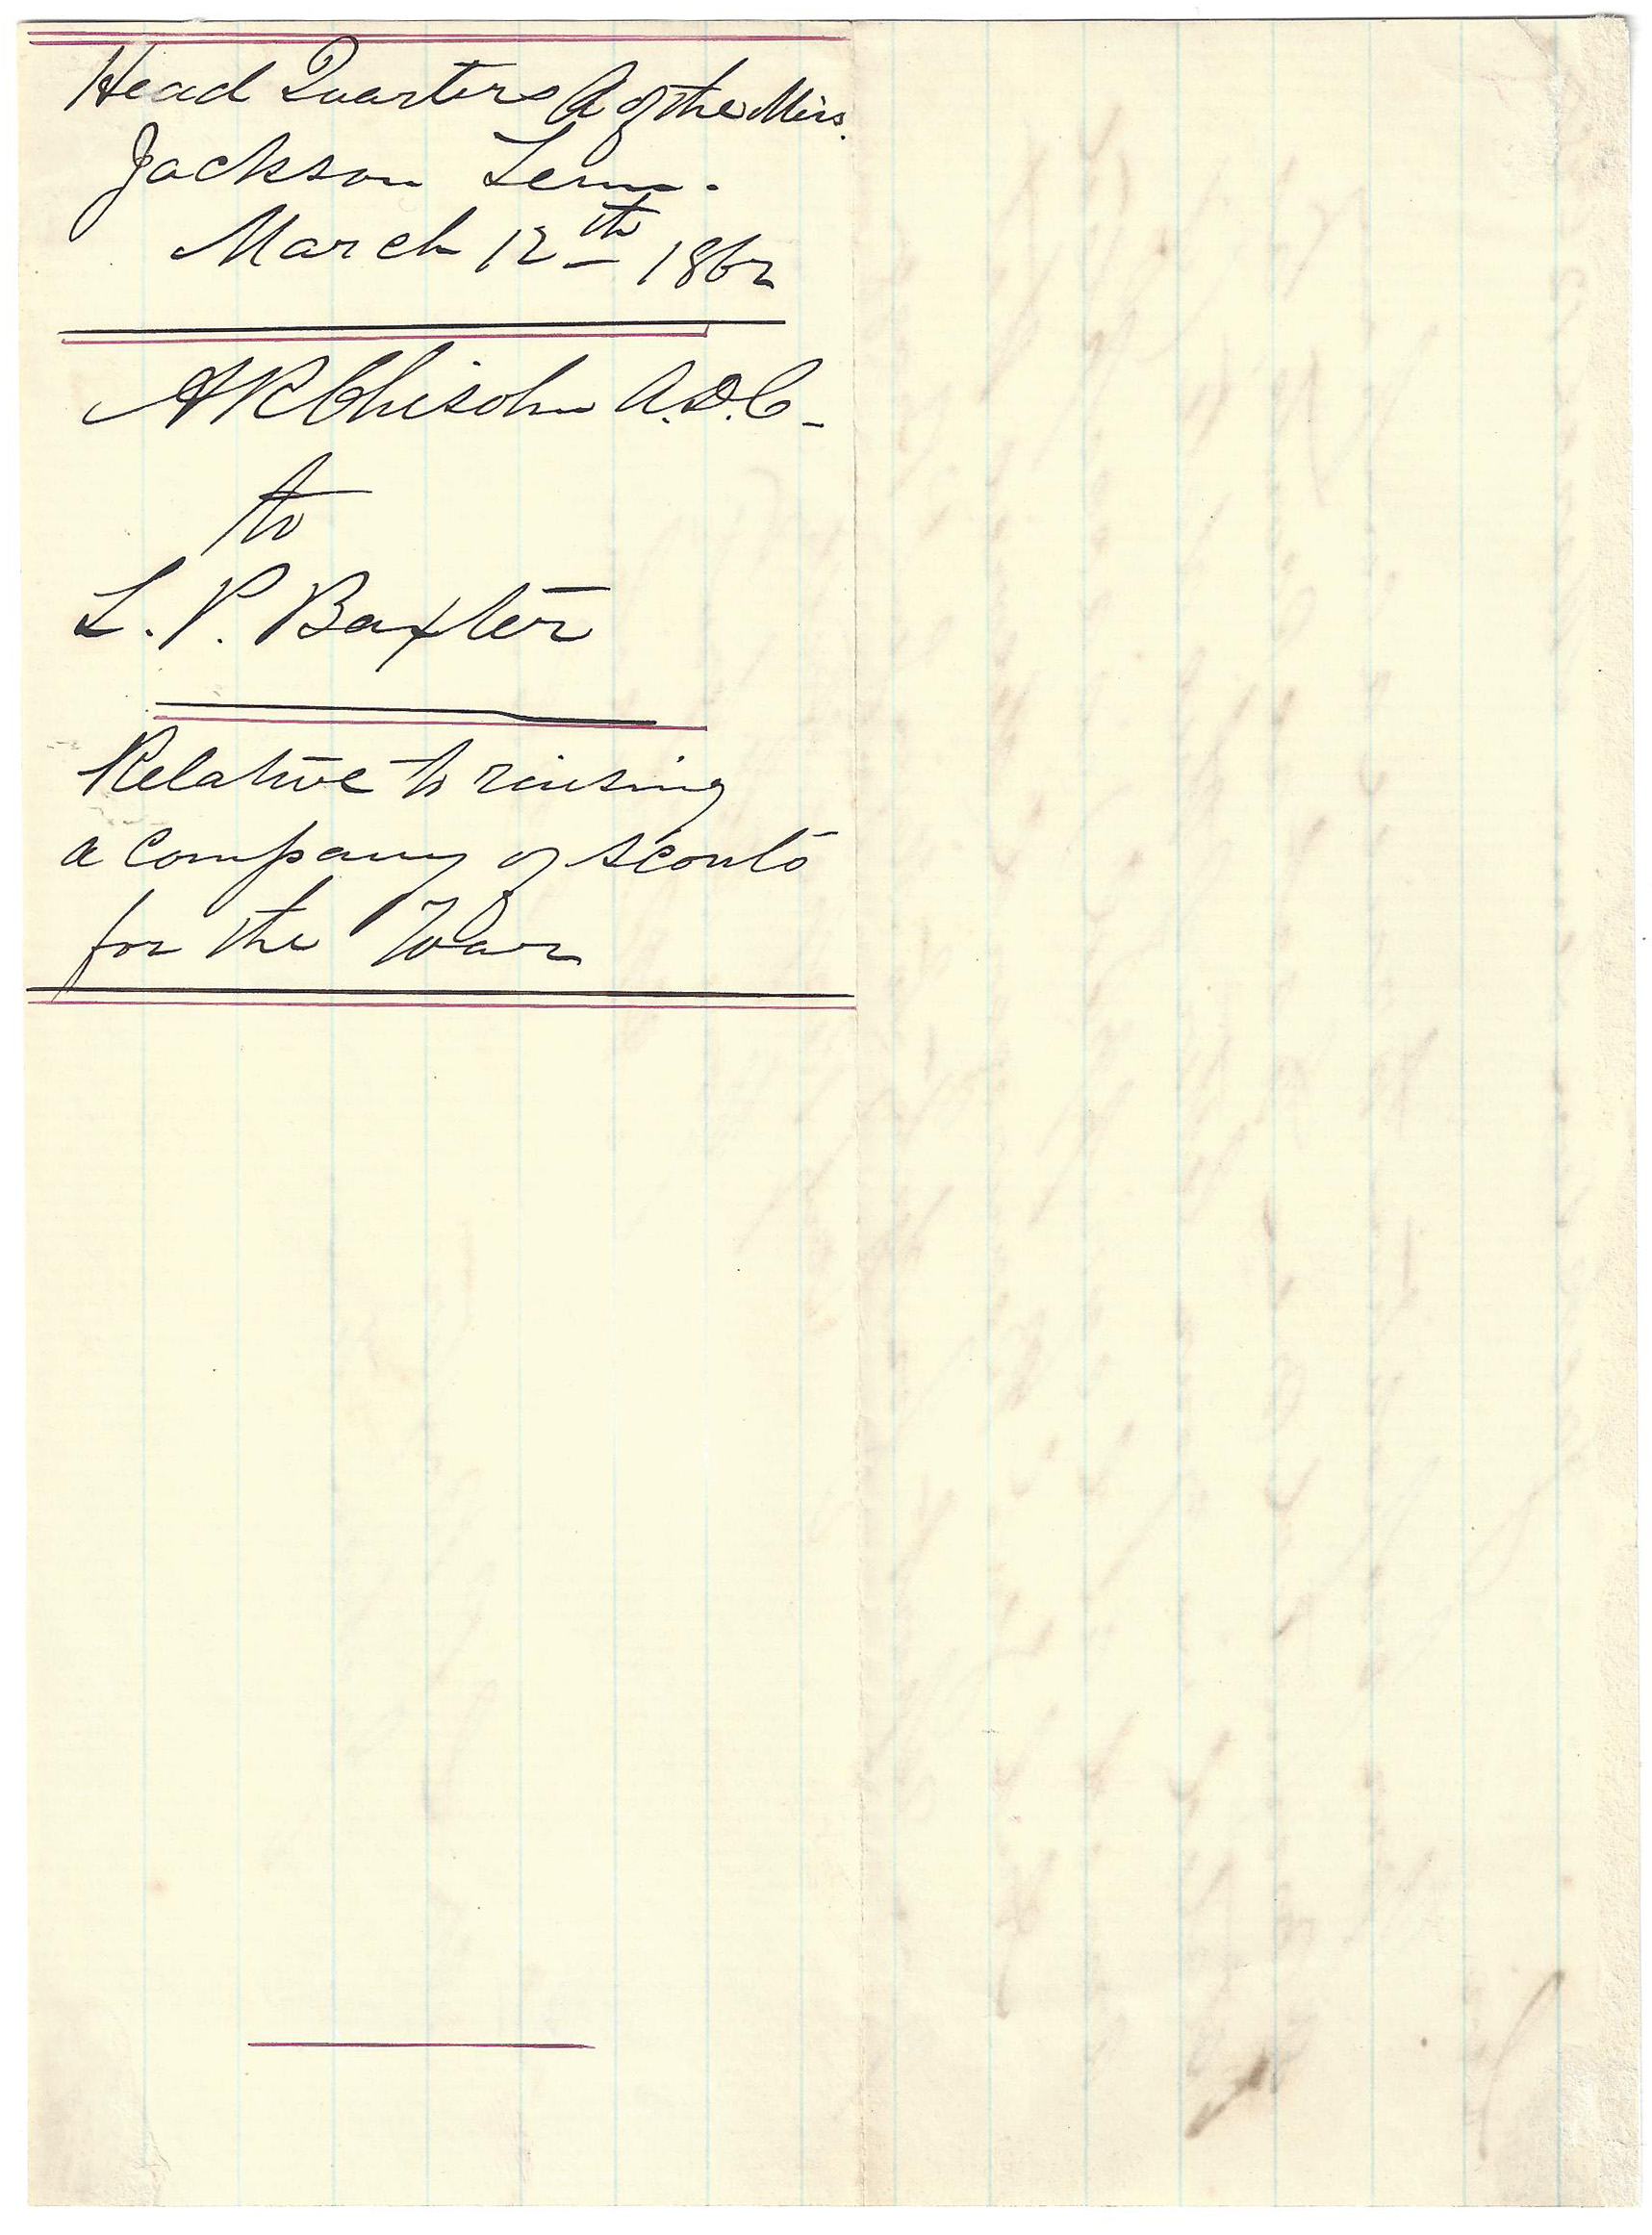 Head Quarters A of the Miss.
Jackson Tenn.
March 12th 1862
A R Chisolm A.D.C.
to
L. P. Baxter
Relative to raising
a company of scouts
for the War